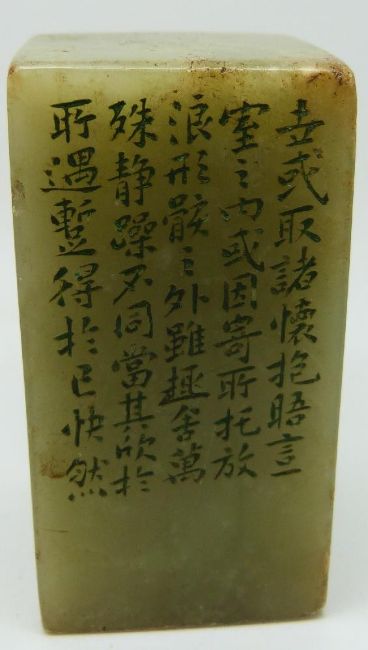 世或取諸懷抱晤言一
室之內或因寄所托放
浪形骸之外雖趣舍萬
殊静躁不同當其欣於
所遇蹔得於己快然